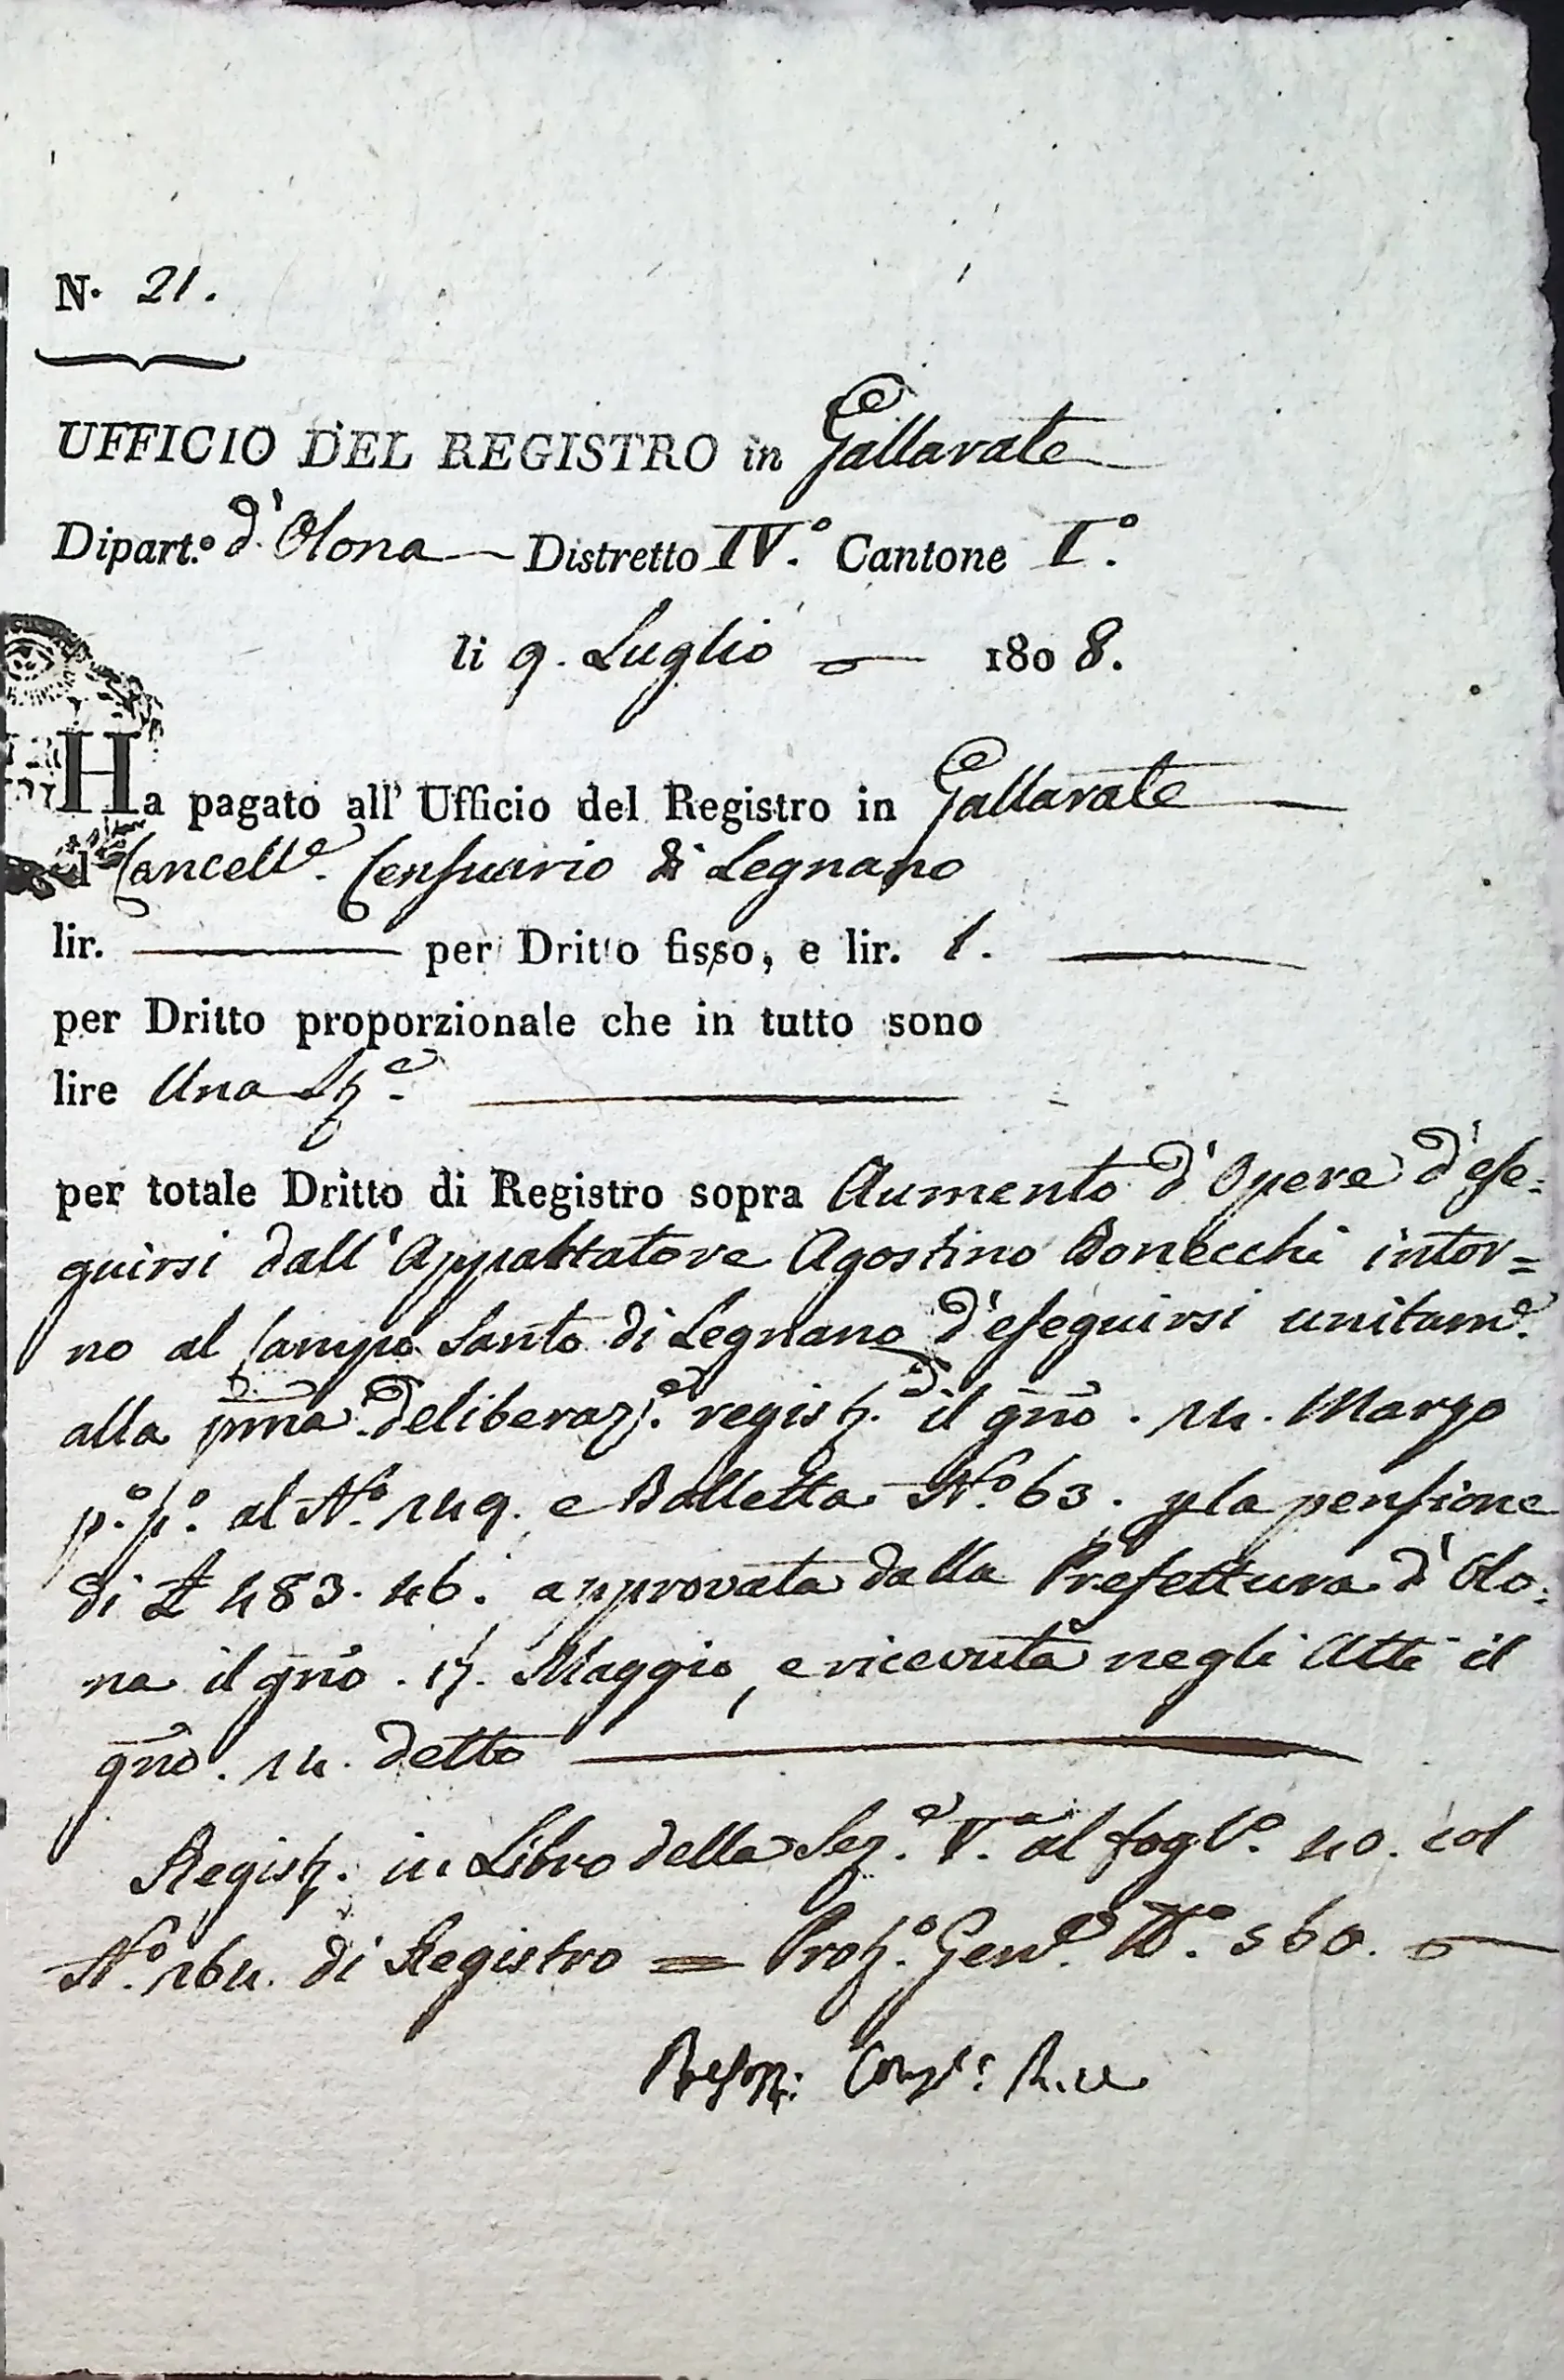 N. 21.
UFFICIO DEL REGISTRO in Gallarate
Dipart.º d'Olona Distretto IV.º Cantone I.º
li 9. Luglio 1808.
Ha pagato all' Ufficio del Registro in Gallarate
il Cancell.e Censuario di Legnano
lir. per Dritto fisso, e lir. 1.
per Dritto proporzionale che in tutto sono
lire Una
per totale Dritto di Registro sopra Aumento d'Opere d'ese:
guirsi dall'Appaltatore Agostino Bonecchi intor=
no al Campo Santo di Legnano d'eseguirsi unitam.e
alla pma deliberaz.e regist. il gño. 14. Marzo
p.º p.º al N.º 149. e Bolletta N.º 63. p la pensione
di £ 483. 46. approvata dalla Prefettura d'Olo:
na il gño. 13. Maggio, e ricevuta negli Atti il
gño. 14. detto
Regist. in Libro della Sez.e V.a al fogl.º 40. col
N.º 164. di Registro = Prot.º Gen.e N.º 560.